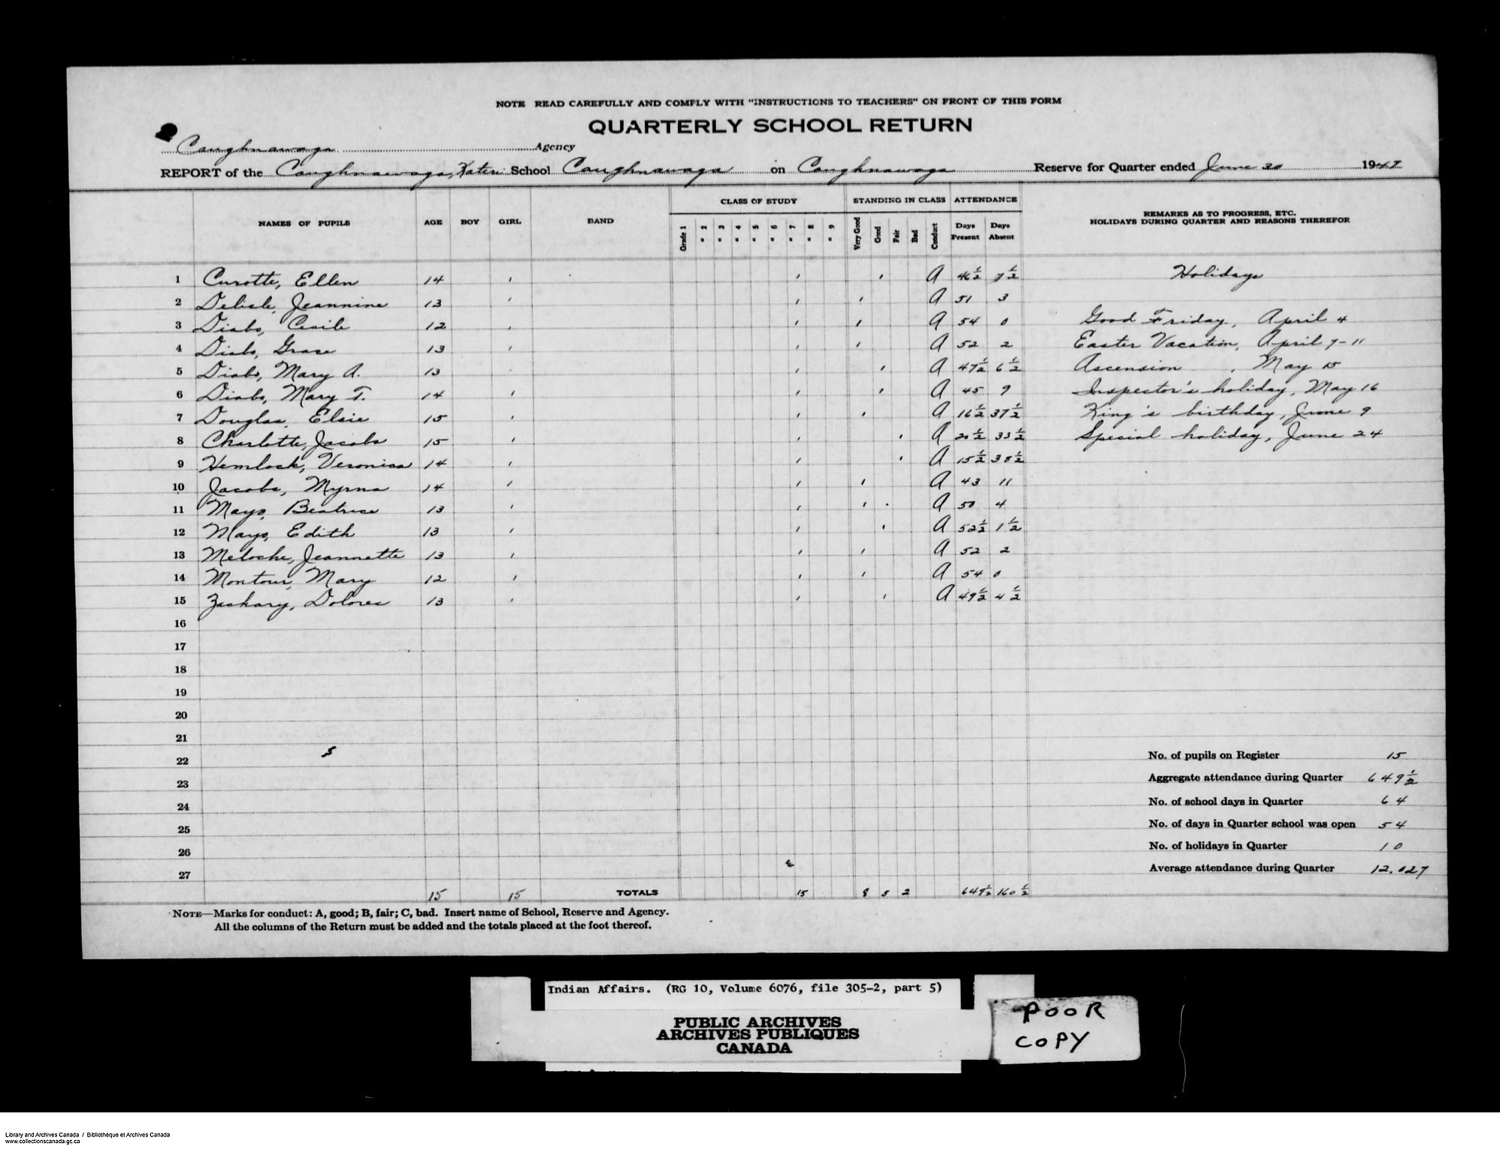 NOTE READ CAREFULLY AND COMPLY WITH "INSTRUCTIONS TO TEACHERS" ON FRONT OF THIS FORM
QUARTERLY SCHOOL RETURN
Caughnawaga Agency
REPORT of the Caughnawaga, Kateri School Caughnawaga on Caughnawaga Reserve for Quarter ended June 30 1947
CLASS OF STUDY STANDING IN CLASS ATTENDANCE
NAMES OF PUPILS AGE BOY GIRL BAND Grade 1 " 2 " 3 " 4 " 5 " 6 " 7 " 8 " 9 Very Good Good Fair Bad Conduct Days Present Days Absent REMARKS AS TO PROGRESS, ETC.
HOLIDAYS DURING QUARTER AND REASONS THEREFOR
1 Curotte, Ellen 14 ' ' ' A 46½ 7½ Holidays
2 Delisle, Jeannine 13 ' ' ' A 51 3
3 Diabo, Cecile 12 ' ' ' A 54 0 Good Friday, April 4
4 Diabo, Grace 13 ' ' ' A 52 2 Easter Vacation, April 7-11
5 Diabo, Mary A. 13 ' ' ' A 47½ 6½ Ascension, May 15
6 Diabo, Mary T. 14 ' ' ' A 45 9 Inspector's holiday, May 16
7 Douglas, Elsie 15 ' ' ' A 16½ 37½ King's birthday, June 9
8 Charlotte, Jacobs 15 ' ' ' A 20½ 33½ Special holiday, June 24
9 Hemlock, Veronica 14 ' ' ' A 15½ 38½
10 Jacobs, Myrna 14 ' ' ' A 43 11
11 Mayo, Beatrice 13 ' ' ' A 50 4
12 Mayo, Edith 13 ' ' ' A 52½ 1½
13 Meloche, Jeannette 13 ' ' ' A 52 2
14 Montour, Mary 12 ' ' ' A 54 0
15 Zachary, Dolores 13 ' ' ' A 49½ 4½
16
17
18
19
20
21
22 No. of pupils on Register 15
23 Aggregate attendance during Quarter 649½
24 No. of school days in Quarter 64
25 No. of days in Quarter school was open 54
26 No. of holidays in Quarter 10
27 Average attendance during Quarter 12.027
15 15 TOTALS 15 8 5 2 649½ 160½
NOTE—Marks for conduct: A, good; B, fair; C, bad. Insert name of School, Reserve and Agency.
All the columns of the Return must be added and the totals placed at the foot thereof.
Indian Affairs. (RG 10, Volume 6076, file 305-2, part 5)
PUBLIC ARCHIVES
ARCHIVES PUBLIQUES
CANADA
POOR
COPY
Library and Archives Canada / Bibliothèque et Archives Canada
www.collectionscanada.gc.ca